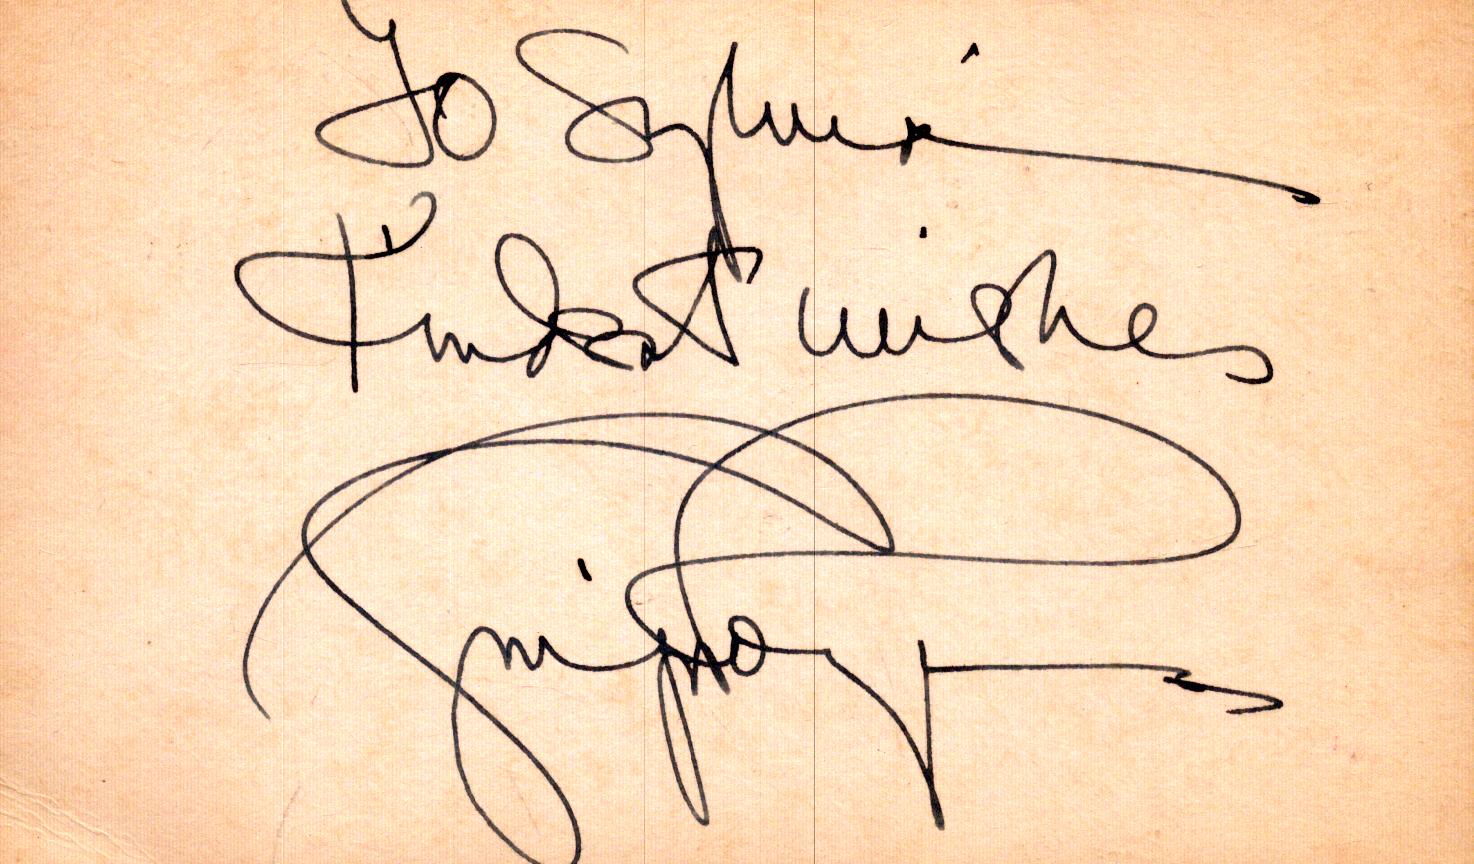 To Sylvia
Kindest wishes